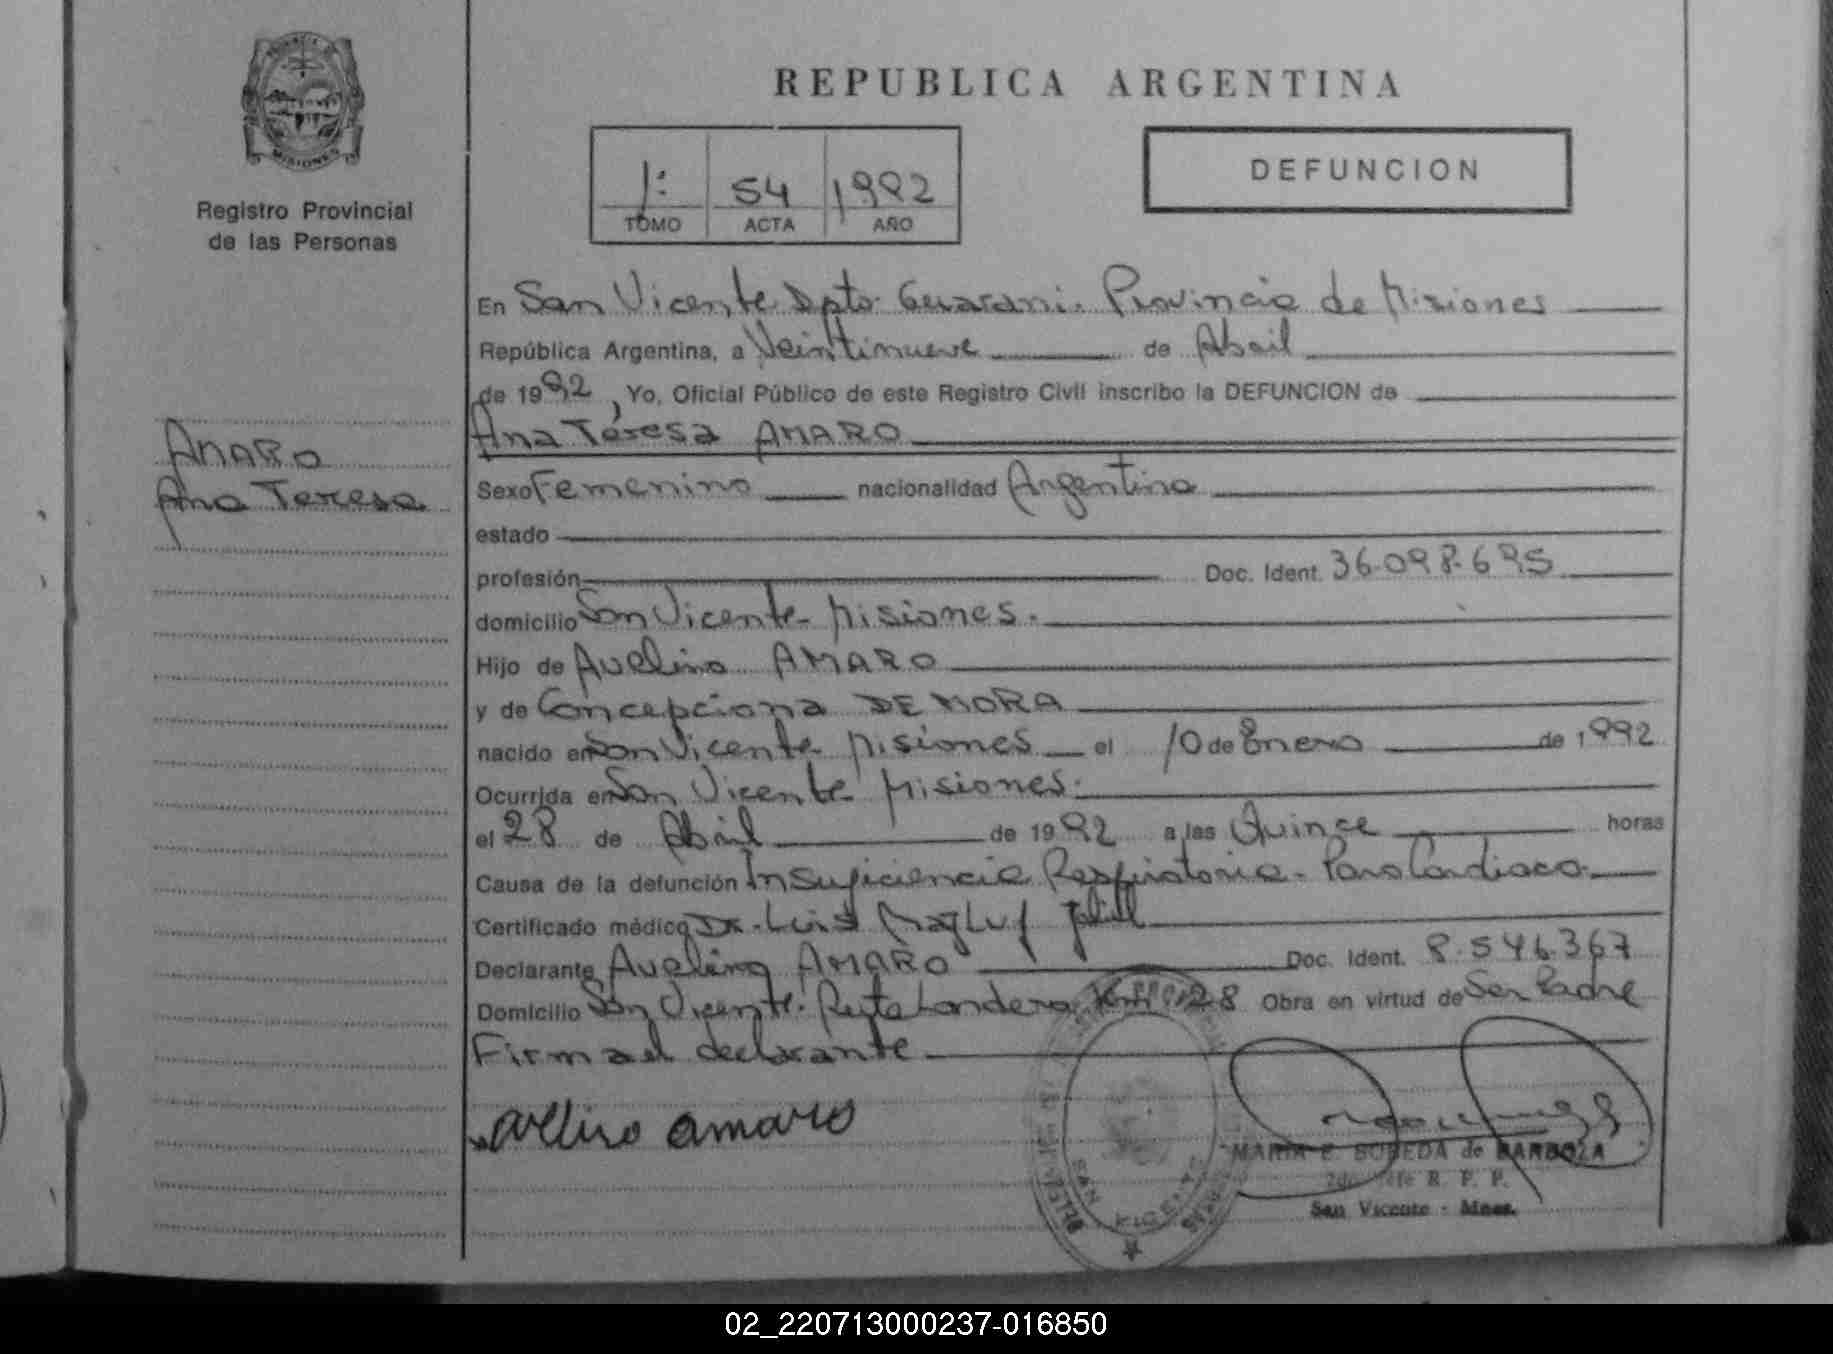 PROVINCIA DE
MISIONES
Registro Provincial
de las Personas
AMARO
Ana Teresa
REPUBLICA ARGENTINA
1: 54 1992
TOMO ACTA AÑO
DEFUNCION
En San Vicente Dpto. Guarani. Provincia de Misiones
República Argentina, a Veintinueve de Abril
de 1992, Yo, Oficial Público de este Registro Civil inscribo la DEFUNCION de
Ana Teresa AMARO
Sexo Femenino nacionalidad Argentina
estado
profesión Doc. Ident. 36.098.695
domicilio San Vicente - Misiones.
Hijo de Avelino AMARO
y de Concepciona DE MORA
nacido en San Vicente Misiones el 10 de Enero de 1992
Ocurrida en San Vicente Misiones.
el 28 de Abril de 1992 a las Quince horas
Causa de la defunción Insuficiencia Respiratoria - Paro Cardiaco.
Certificado médico Dr. Luis Magluf
Declarante Avelino AMARO Doc. Ident. 8.546.367
Domicilio San Vicente. Ruta Km 28 Obra en virtud de Ser Padre
Firma el declarante
avelino amaro
SAN VICENTE
MARIA E. BOBEDA de BARBOZA
2do Jefe R. P. P.
San Vicente - Mnes.
02_220713000237-016850